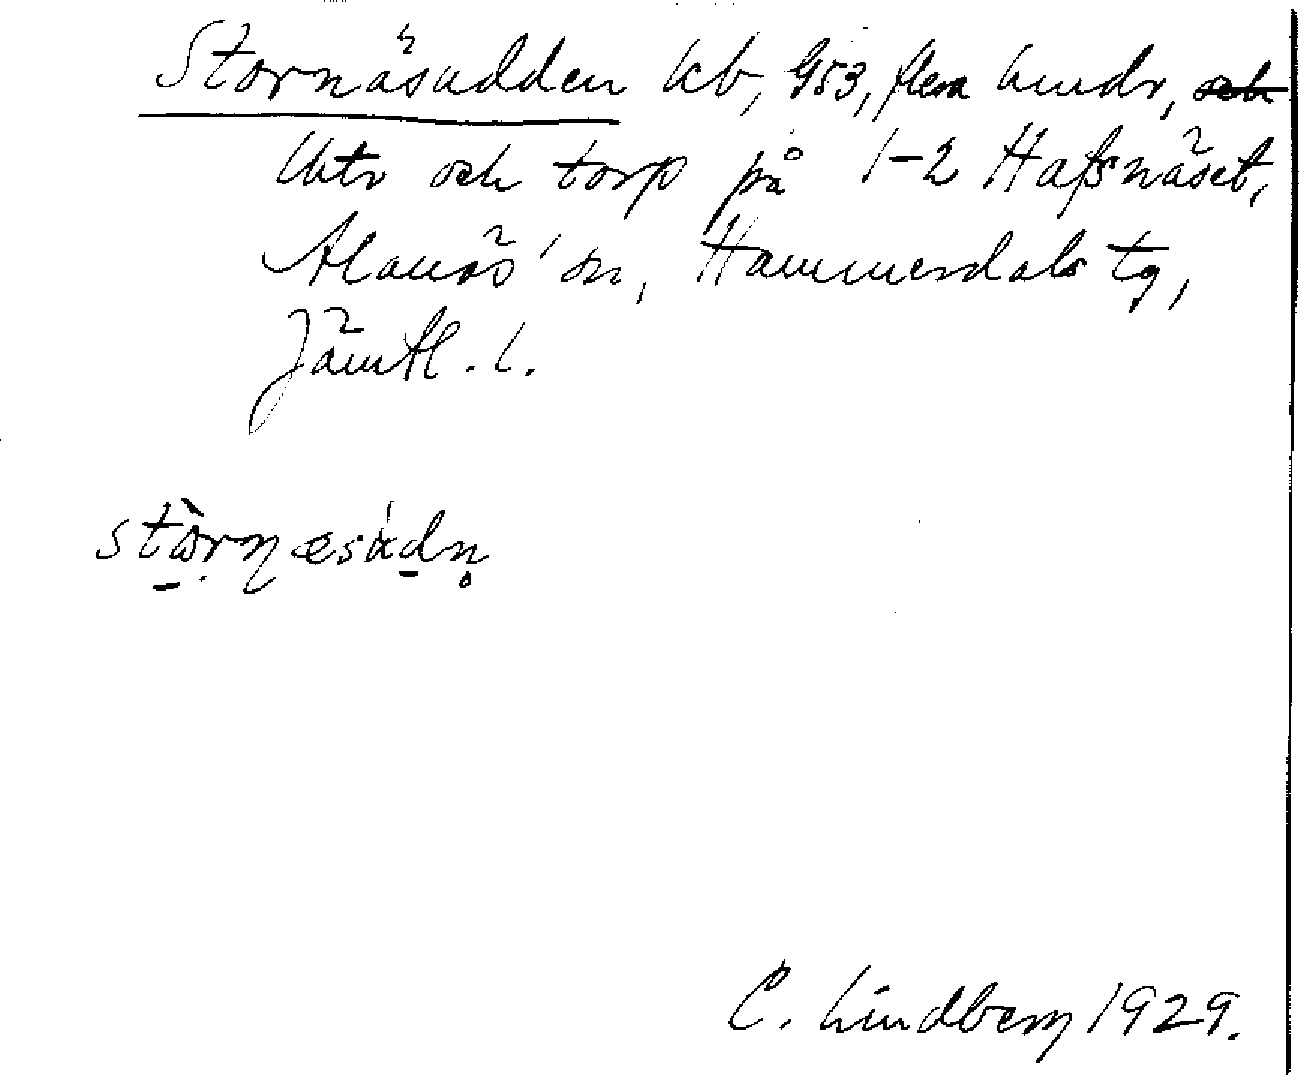 Stornäsudden kb, 953, flera hundr,
lhtr och torp på 1-2 Hafsnäset,
Alanäs' sn, Hammerdals tg,
Jämtl. l.
stò̱rṇæsúd̲n̥
C. Lindberg 1929.